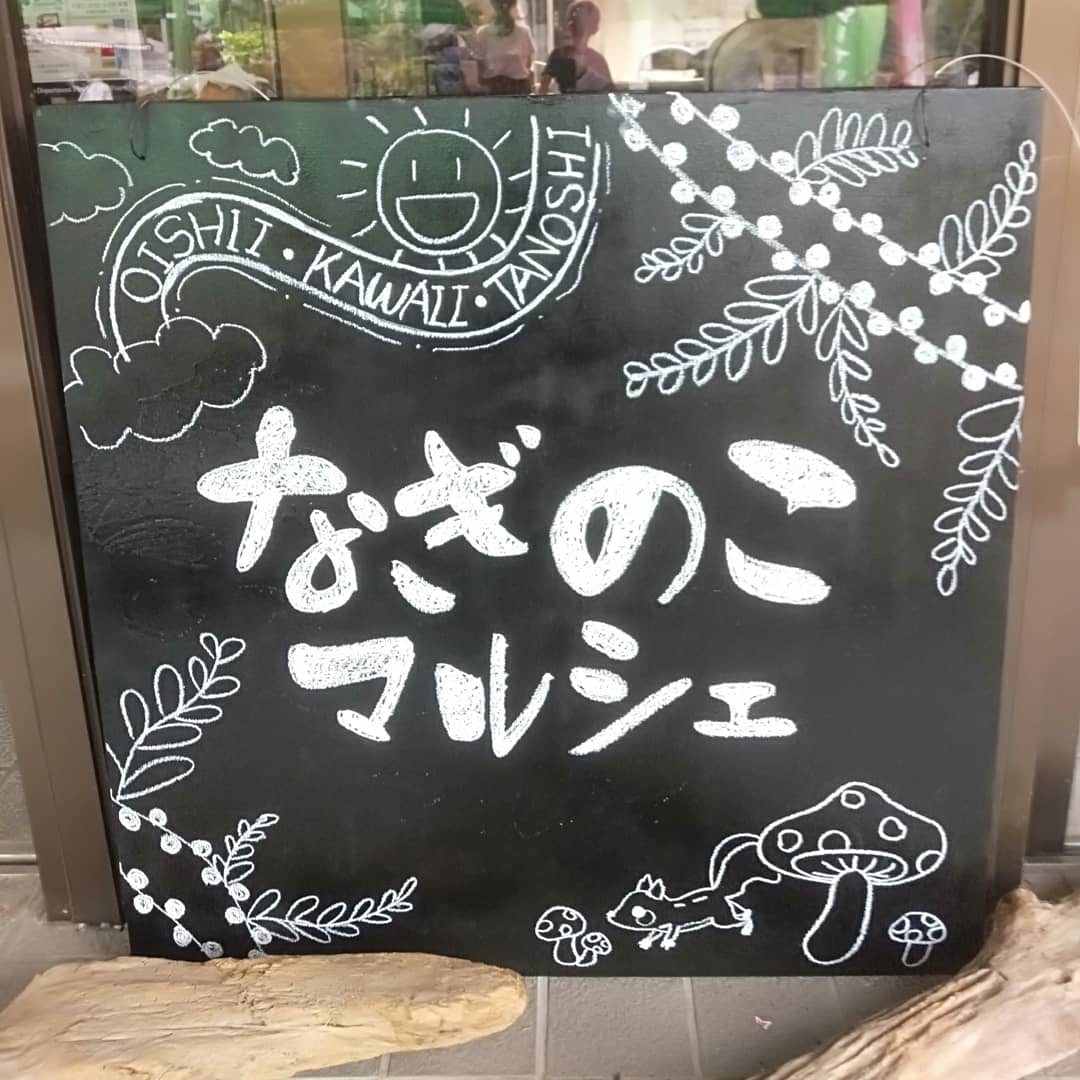 OISHII・KAWAII・TANOSHI
なぎのこ
マルシェ